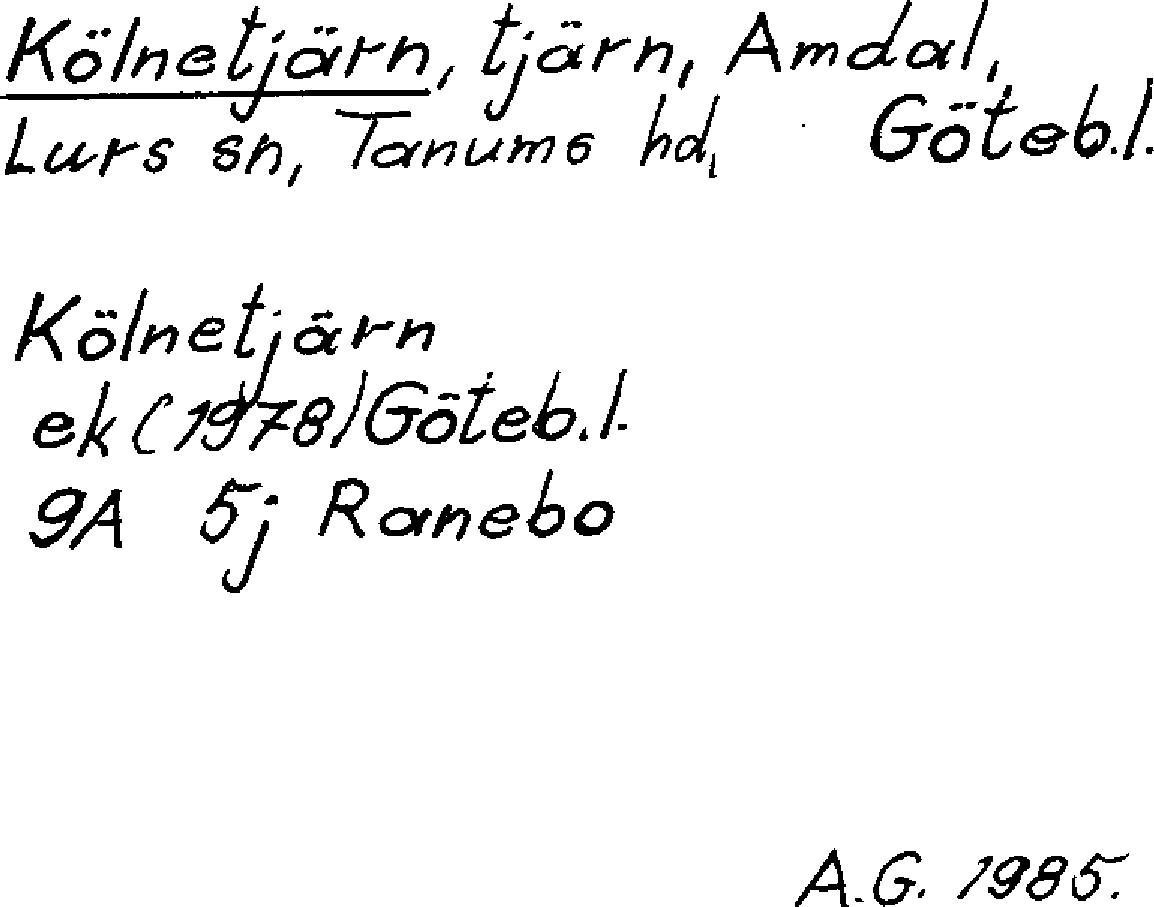 Kölnetjärn, tjärn, Amdal,
Lurs sn, Tanums hd, Göteb.l.
Kölnetjärn
ek (1978) Göteb.l.
9A 5j Ranebo
A.G. 1985.